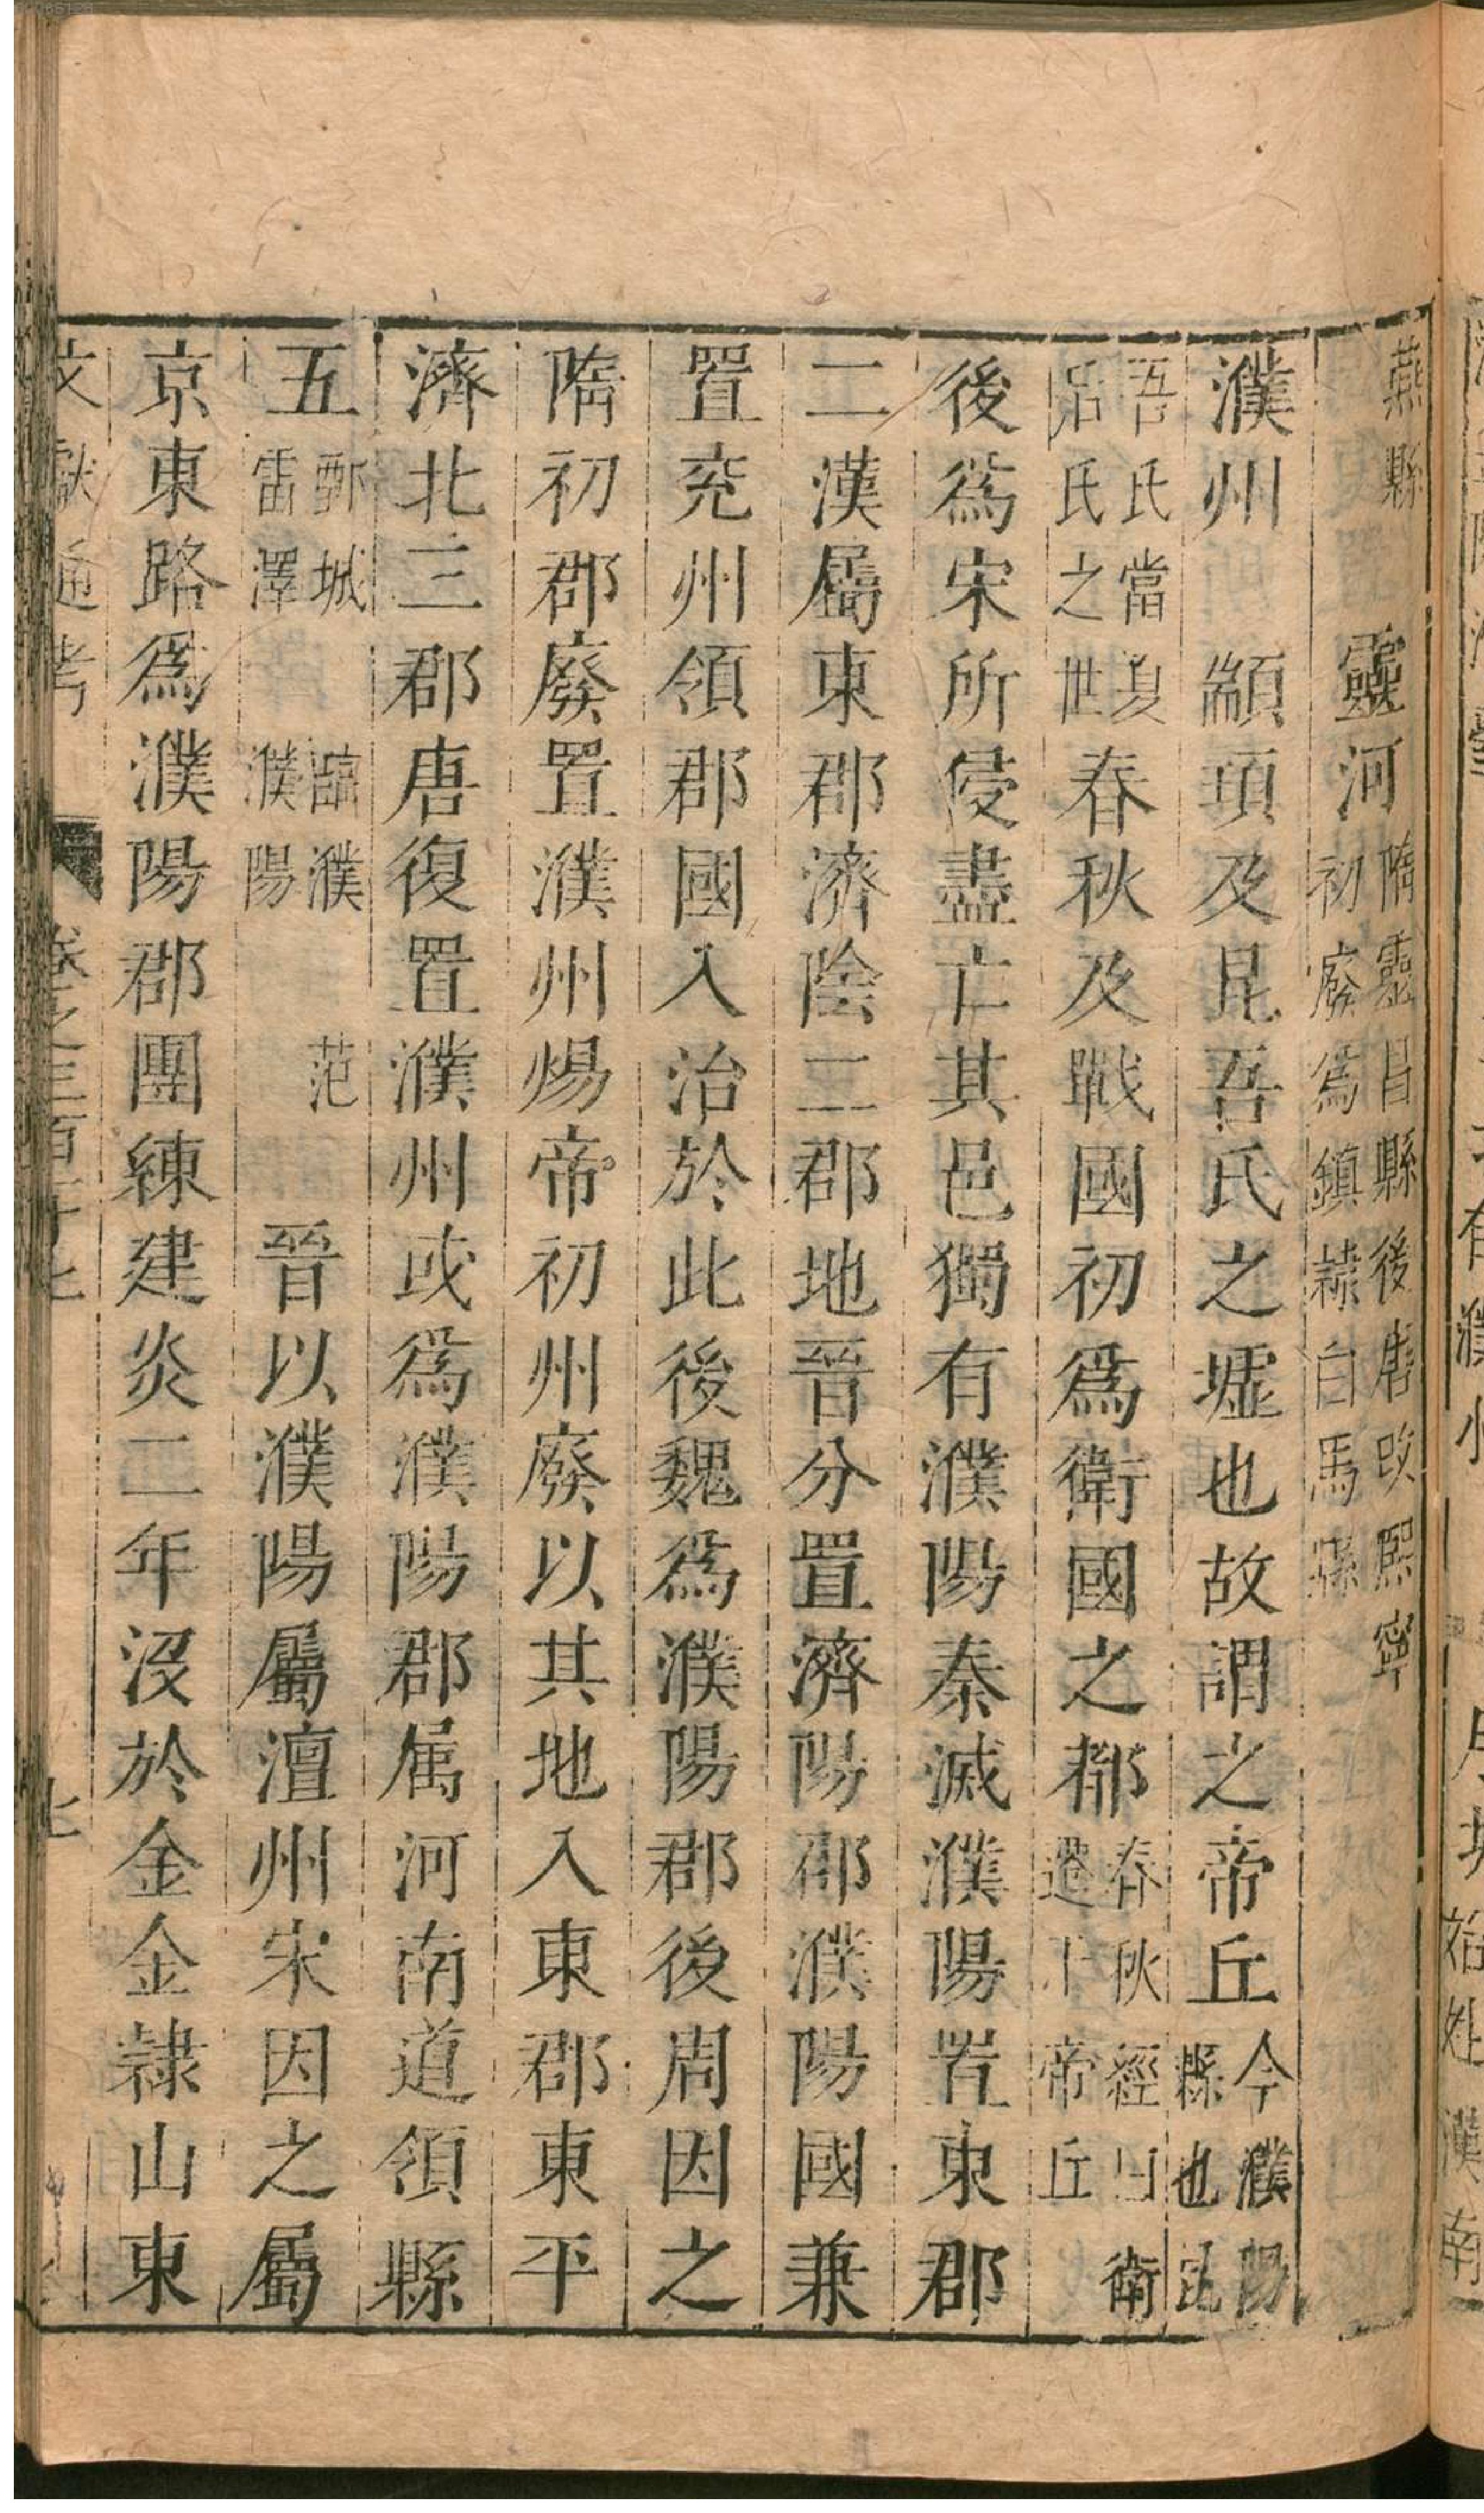 燕縣　靈河隋靈昌縣後唐改熙寧初廢爲鎮隸白馬縣
濮州　顓頊及昆吾氏之墟也故謂之帝丘今濮陽縣也昆
吾氏當夏后氏之世春秋及戰國初爲衛國之都春秋經曰衛遷于帝丘
後爲宋所侵盡亡其邑獨有濮陽秦滅濮陽置東郡
二漢屬東郡濟陰二郡地晉分置濟陽郡濮陽國兼
置兖州領郡國入治於此後魏爲濮陽郡後周因之
隋初郡廢置濮州煬帝初州廢以其地入東郡東平
濟北三郡唐復置濮州或爲濮陽郡属河南道領縣
五鄄城雷澤臨濮濮陽范　晉以濮陽屬澶州宋因之屬
京東路爲濮陽郡團練建炎二年沒於金金隸山東
文獻通考　卷之三百十七　七